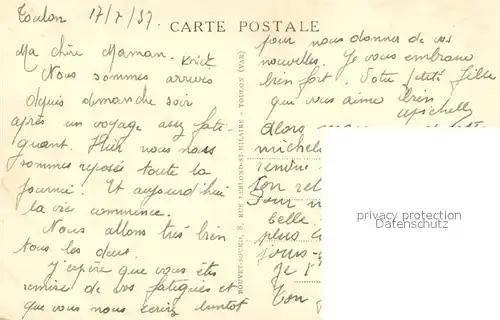 Toulon 17/7/37.
CARTE POSTALE
Ma chère Maman. Krick
Nous sommes arrivés
depuis dimanche soir
après un voyage assez fati-
guant. Hier nous nous
sommes reposée toute la
journée. Et aujourd'hui
la vie commence.
Nous allons très bien
tous les deux.
J'espère que vous êtes
remise de vos fatigues et
que vous nous écrirez bientôt
BOUVET-SOURD, 8, RUE LEBLOND-ST-HILAIRE - TOULON (VAR)
pour nous donner de vos
nouvelles. Je vous embrasse
bien fort. Votre petite fille
qui vous aime bien
Michelle
Alors
michel
rendre
Ton
Pour
belle.
plus
jours
Je t'
Ton
privacy protection
Datenschutz